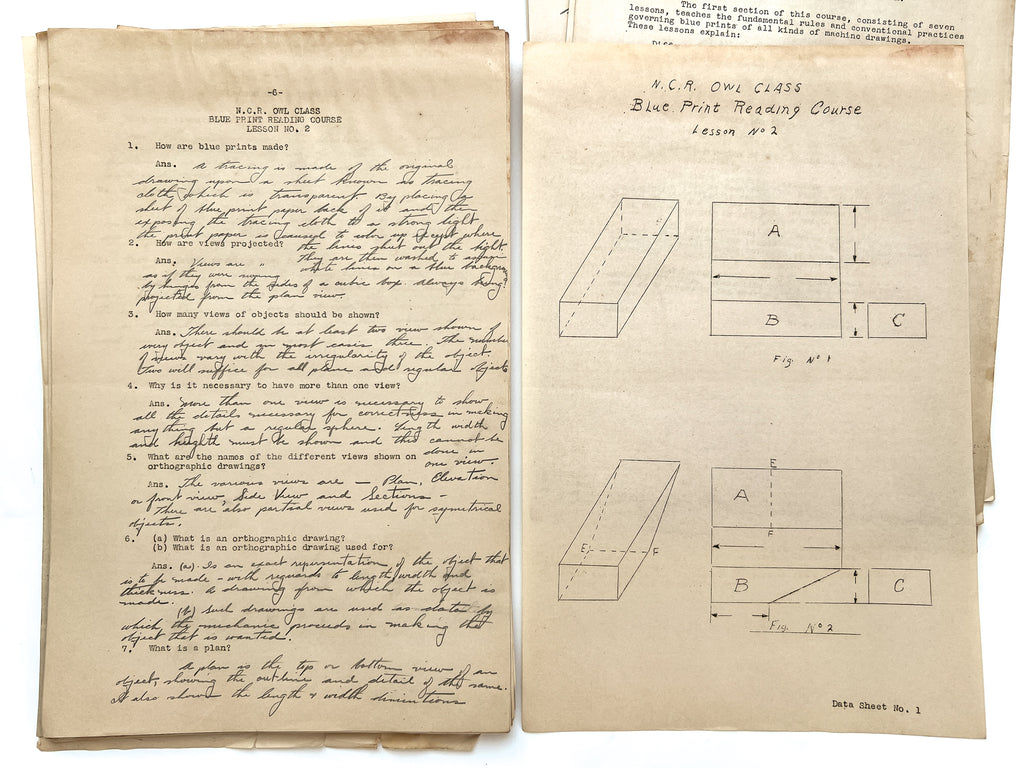 -6-
N.C.R. OWL CLASS
BLUE PRINT READING COURSE
LESSON NO. 2
1. How are blue prints made?
Ans. A tracing is made of the original
drawing upon a sheet known as tracing
cloth, which is transparent. By placing a
sheet of blue print paper back of it and then
exposing the tracing cloth to a strong light
the print paper is caused to color up except where
the lines shut out the light.
they are then washed to
white lines on a blue
2. How are views projected?
Ans. Views are "
as if they were swung
by hinges from the sides of a cubic box. always being
projected from the plan view.
3. How many views of objects should be shown?
Ans. There should be at least two view shown of
every object and in most cases three. The number
of views vary with the irregularity of the object.
Two will suffice for all plane and regular objects
4. Why is it necessary to have more than one view?
Ans. More than one view is necessary to show
all the details necessary for correctness in making
anything but a regular sphere. Length width
and heighth must be shown and this cannot be
done in
one view.
5. What are the names of the different views shown on
orthographic drawings?
Ans. The various views are — Plan, Elevation
or front view, Side View and Sections -
There are also partial views used for symetrical
objects.
6. (a) What is an orthographic drawing?
(b) What is an orthographic drawing used for?
Ans. (a). Is an exact representation of the object that
is to be made - with reguards to length, width and
thickness. A drawing from which the object is
made.
(b) Such drawings are used as data by
which the mechanic proceeds in making the
object that is wanted.
7. What is a plan?
A plan is the top or bottom view of an
object, showing the outline and detail of the same.
It also shows the length & width dimentions
The first section of this course, consisting of seven
lessons, teaches the fundamental rules and conventional practices
governing blue prints of all kinds of machine drawings.
These lessons explain:
N.C.R. OWL CLASS
Blue Print Reading Course
Lesson No 2
A
B
C
Fig. No 1
E
A
F
E
F
B
C
Fig. No 2
Data Sheet No. 1